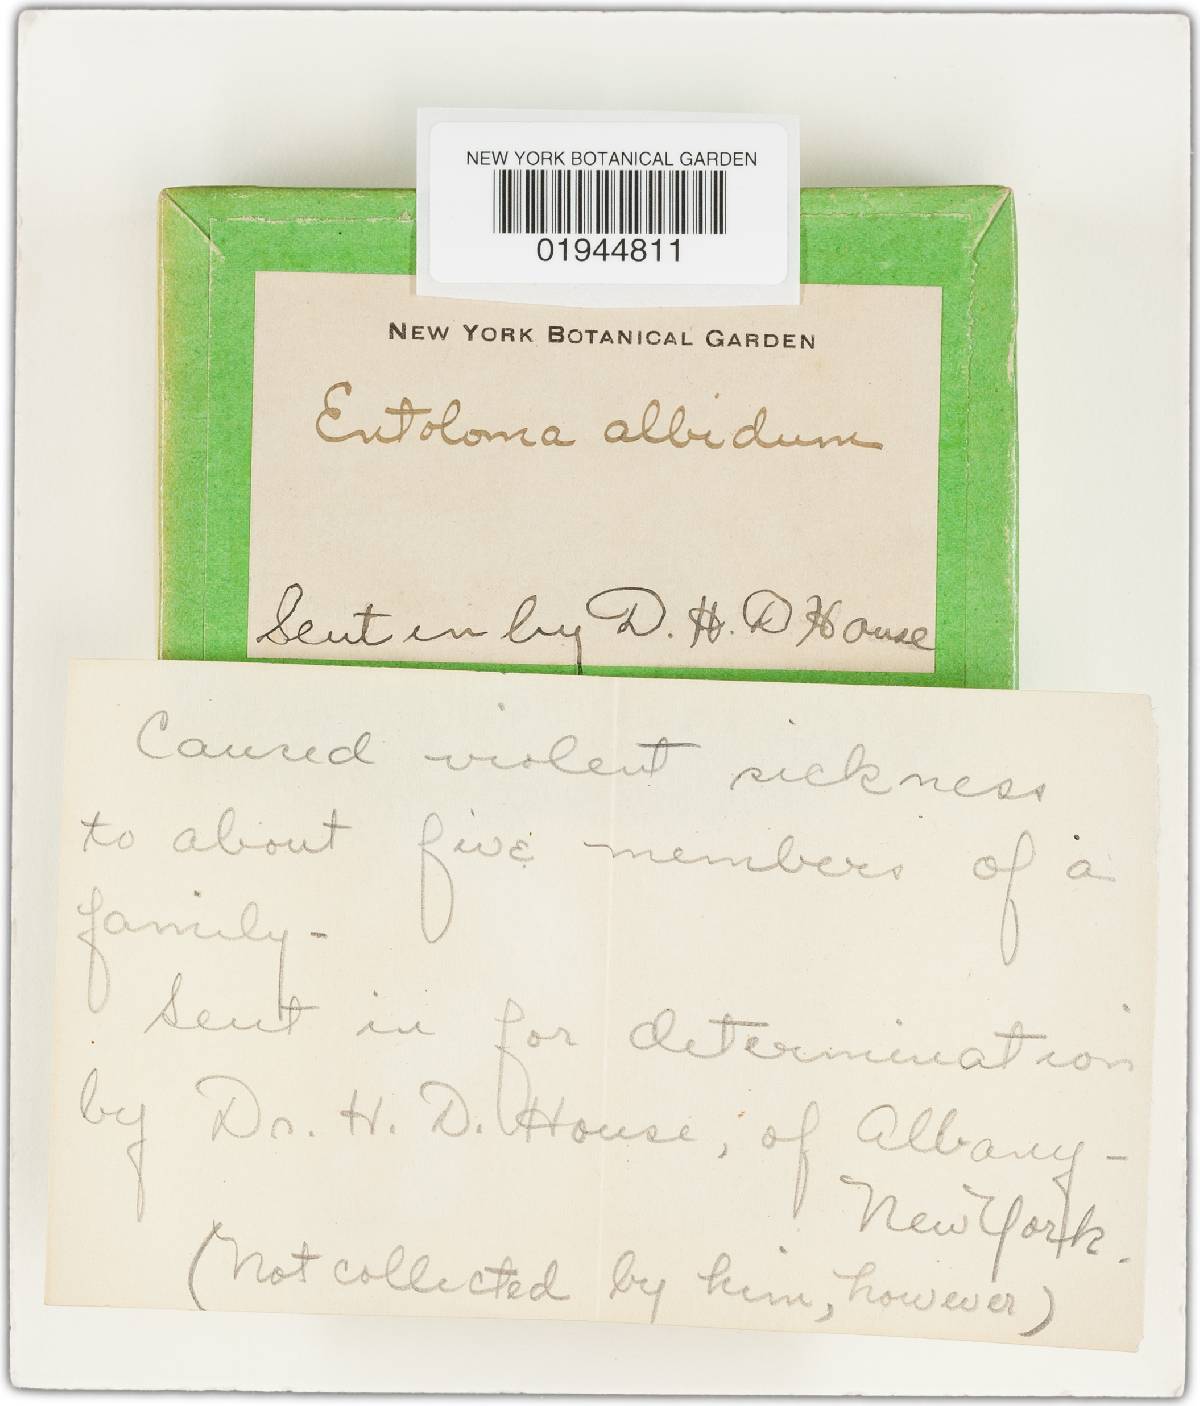 NEW YORK BOTANICAL GARDEN
01944811
NEW YORK BOTANICAL GARDEN
Entoloma albidum
Sent in by D. H. D House
Caused violent sickness
to about five members of a
family-
Sent in for determination
by Dr. H. D. House, of Albany-
New York.
(Not collected by him, however)